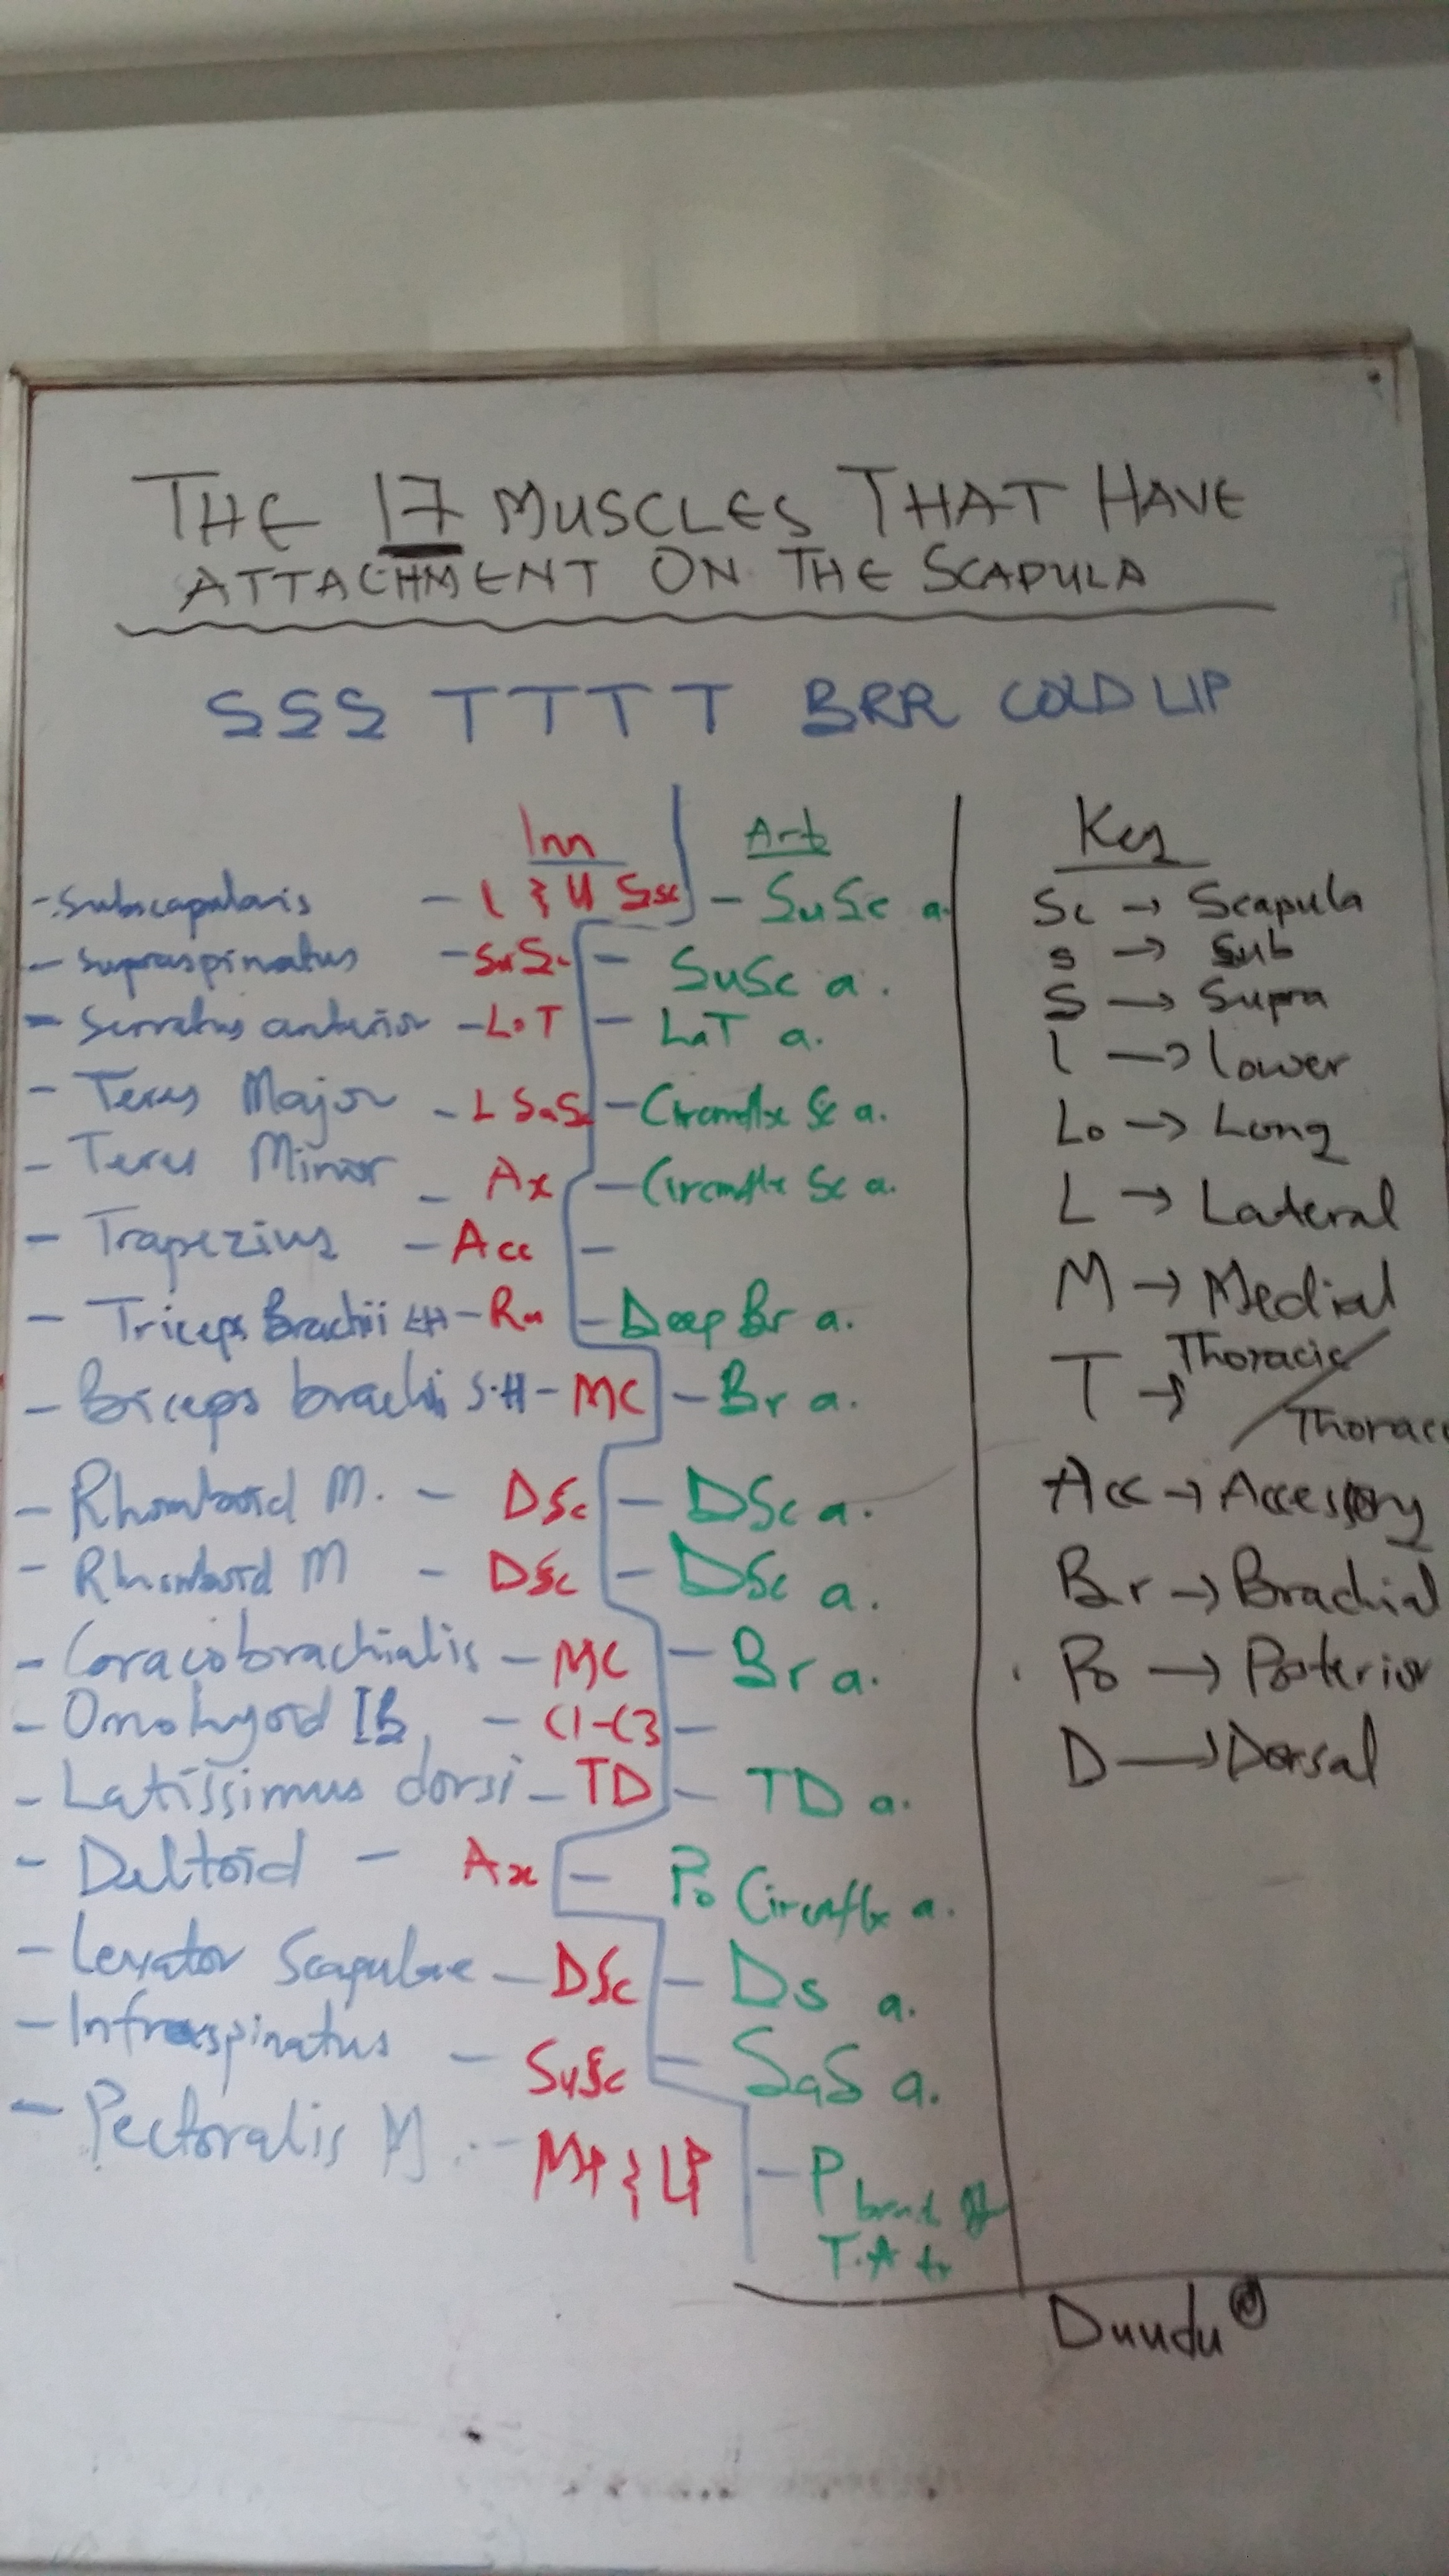 THE 17 MUSCLES THAT HAVE
ATTACHMENT ON THE SCAPULA
SSS TTTT BRR COLD LIP
Inn Art Key
- Subscapularis - L & U Ssc - SuSc a.
- Supraspinatus - SuSc - SuSc a.
- Serratus anterior - LoT - LaT a.
- Teres Major - LSuSc - Circumflx Sc a.
- Teres Minor - Ax - Circumflx Sc a.
- Trapezius - Acc -
- Triceps Brachii LH - Ra - Deep Br a.
- Biceps brachi S.H - MC - Br a.
- Rhomboid M. - DSc - DSc a.
- Rhomboid M - DSc - DSc a.
- Coracobrachialis - MC - Br a.
- Omohyoid IB - C1-C3 -
- Latissimus dorsi - TD - TD a.
- Deltoid - Ax - Po Circumflx a.
- Levator Scapulae - DSc - Ds a.
- Infraspinatus - SuSc - SuS a.
- Pectoralis M. - Mp & Lp - P branch of
T.A tr
Sc → Scapula
s → Sub
S → Supra
L → Lower
Lo → Long
L → Lateral
M → Medial
T → Thoracic
Thorac
Acc → Accessory
Br → Brachial
Po → Posterior
D → Dorsal
Dundu